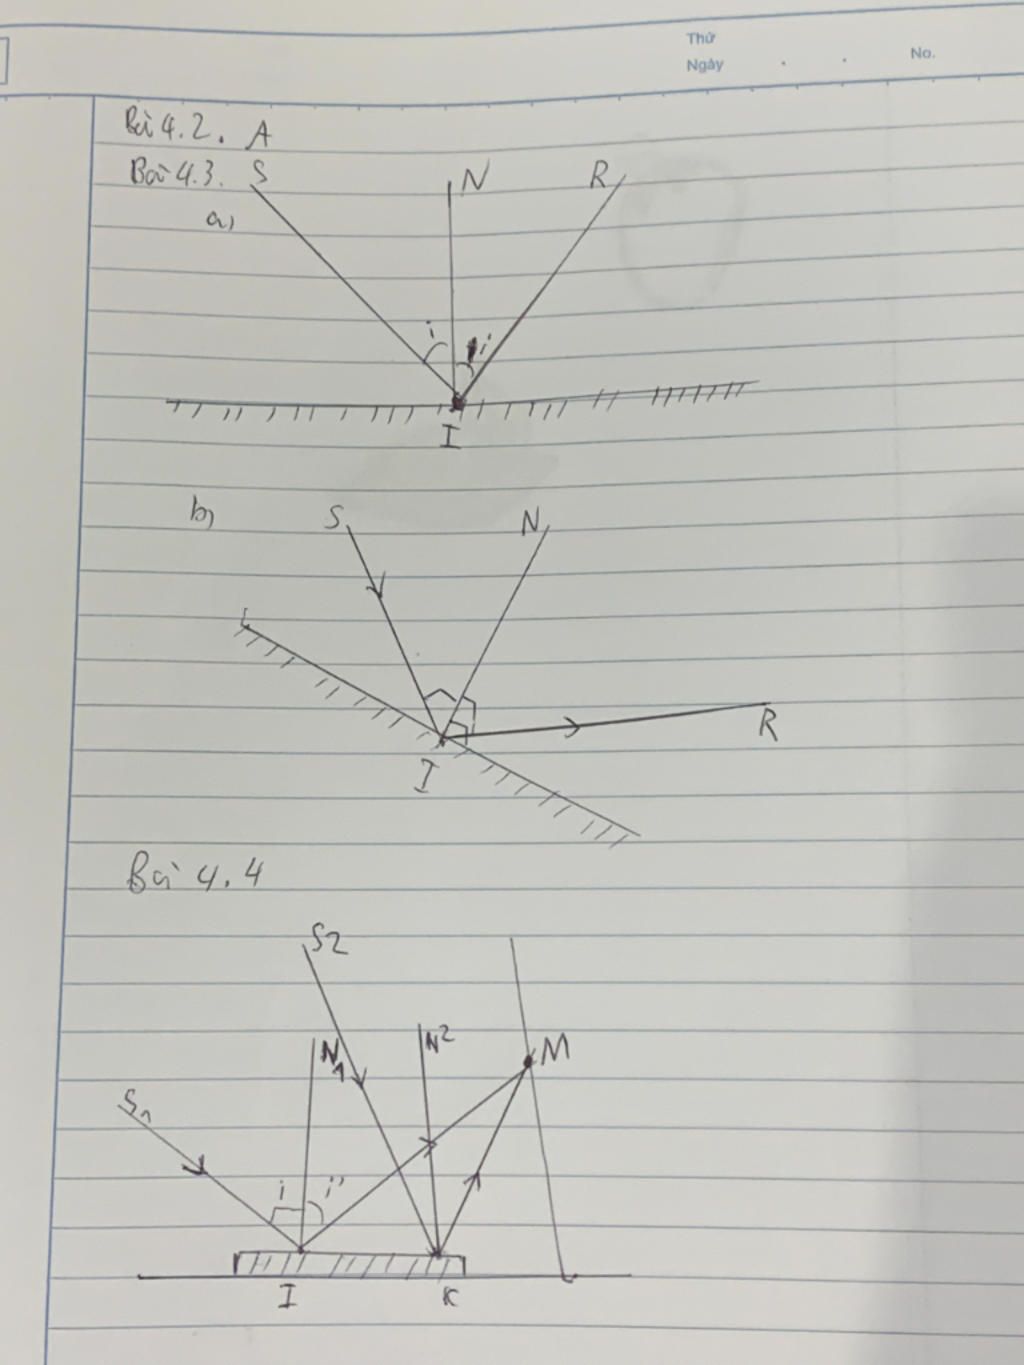 Thứ
Ngày . . No.
Bài 4.2. A
Bài 4.3. S N R
a)
i i
I
b) S N
R
I
Bài 4.4
S2
N1 N2 M
S1
i i'
I K